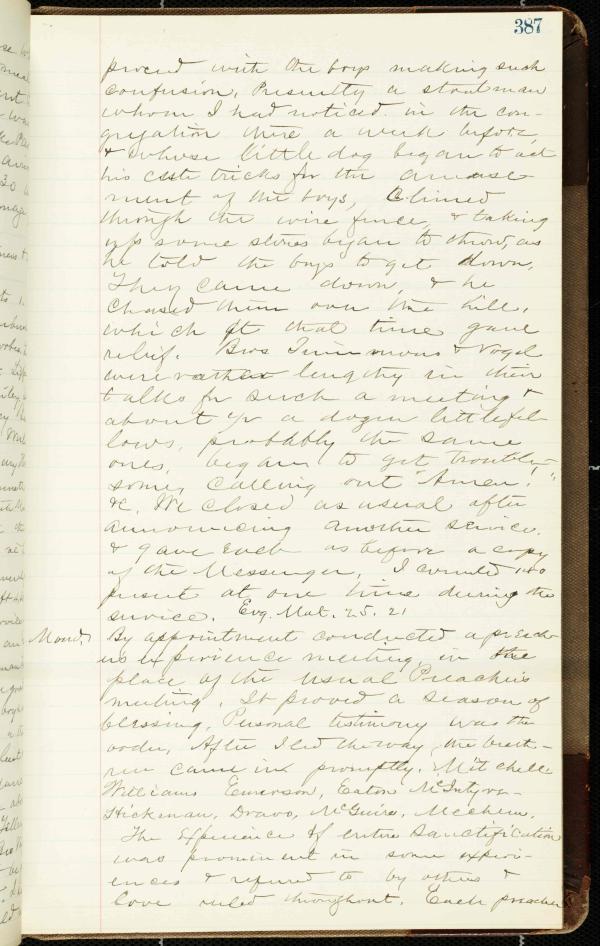 387
proceed with the boys making such
confusion. Presently a stout man
whom I had noticed in the con-
gregation there a week before,
& whose little dog began to act
his cute tricks for the amuse-
ment of the boys, Climed
through the wire fence, & taking
up some stones began to throw, as
he told the boys to get down.
They came down, & he
chased them over the hill,
which at that time gave
relief. Bros Timmons & Vogel
were rather lengthy in their
talks for such a meeting &
about ½ a dozen little fel-
lows, probably the same
ones, began to get trouble-
some, calling out "Amen!"
&c. We closed as usual after
announcing another service.
& gave each as before a copy
of the Messenger. I counted 100
present at one time during the
service. Evg. Mat. 25. 21
Mond. By appointment conducted a preach-
ers experience meeting, in the
place of the usual Preachers
meeting. It proved a season of
blessing. Personal testimony was the
order. After I led the way, the breth-
ren came in promptly. Mitchell
Williams Emerson, Eaton McIntyre-
Hickman, Dravo, McGuire, Mechem.
The Experience of entire Sanctification
was prominent in some experi-
ences & refered to by others &
love ruled throughout. Each preacher